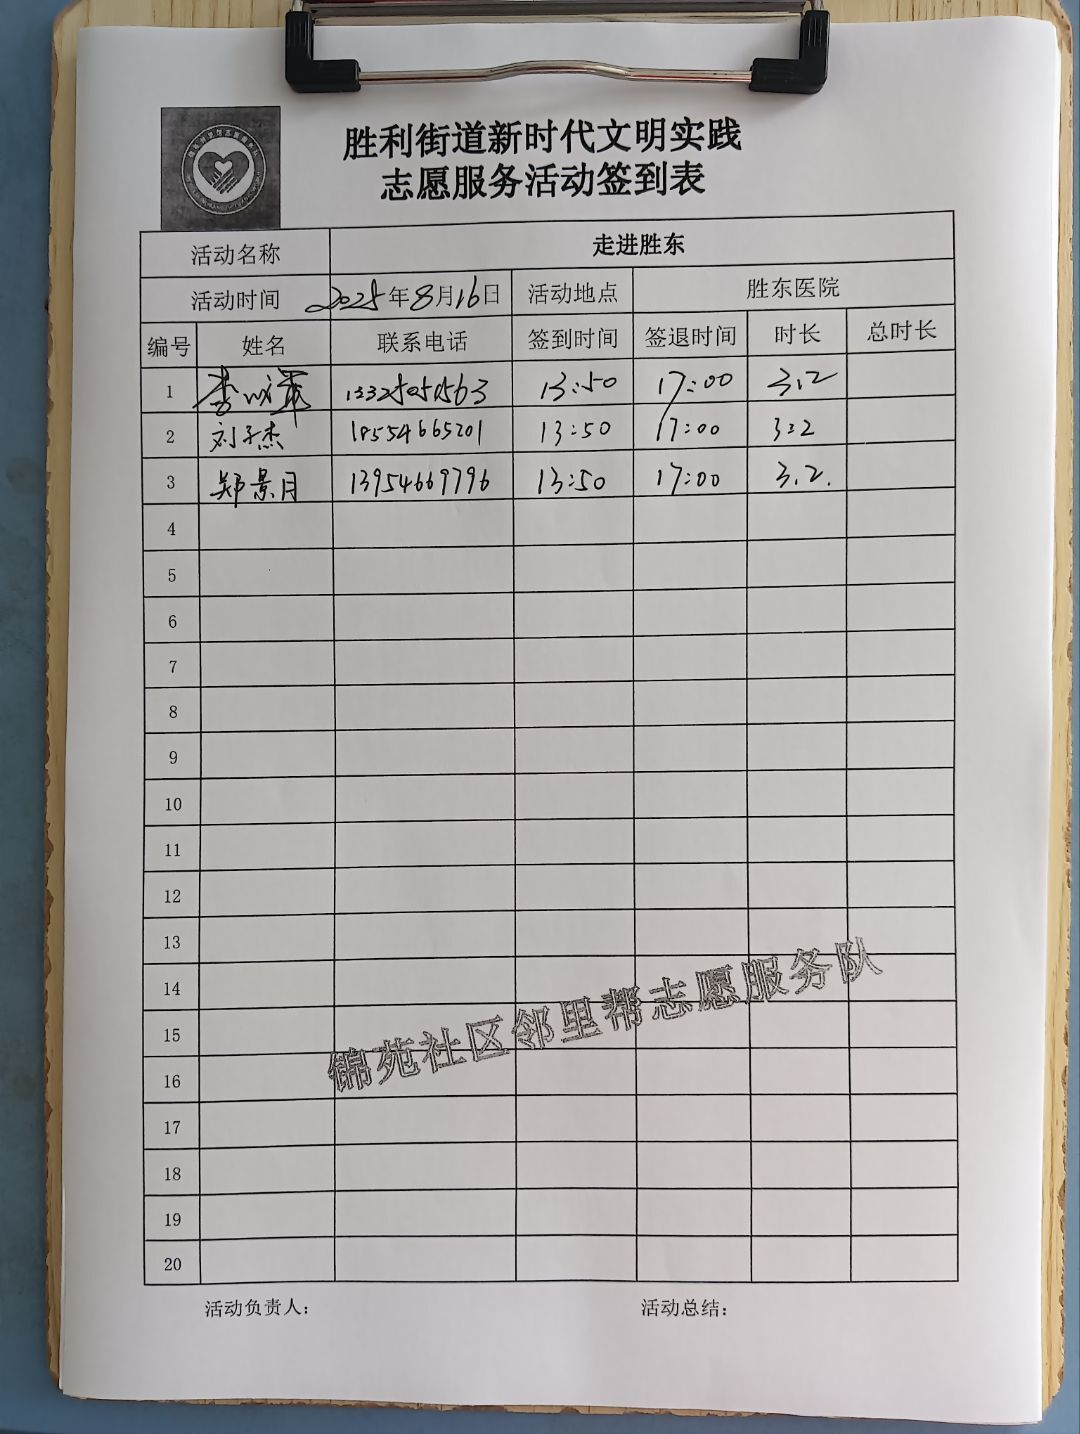 胜利街道新时代文明实践
志愿服务活动签到表
活动名称 走进胜东
活动时间 2025年8月16日 活动地点 胜东医院
编号 姓名 联系电话 签到时间 签退时间 时长 总时长
1 李 13325050563 13:50 17:00 3.2
2 刘子杰 18554665201 13:50 17:00 3:2
3 郑景月 13954669796 13:50 17:00 3.2.
4
5
6
7
8
9
10
11
12
13
14
15
16
17
18
19
20
锦苑社区邻里帮志愿服务队
活动负责人: 活动总结: